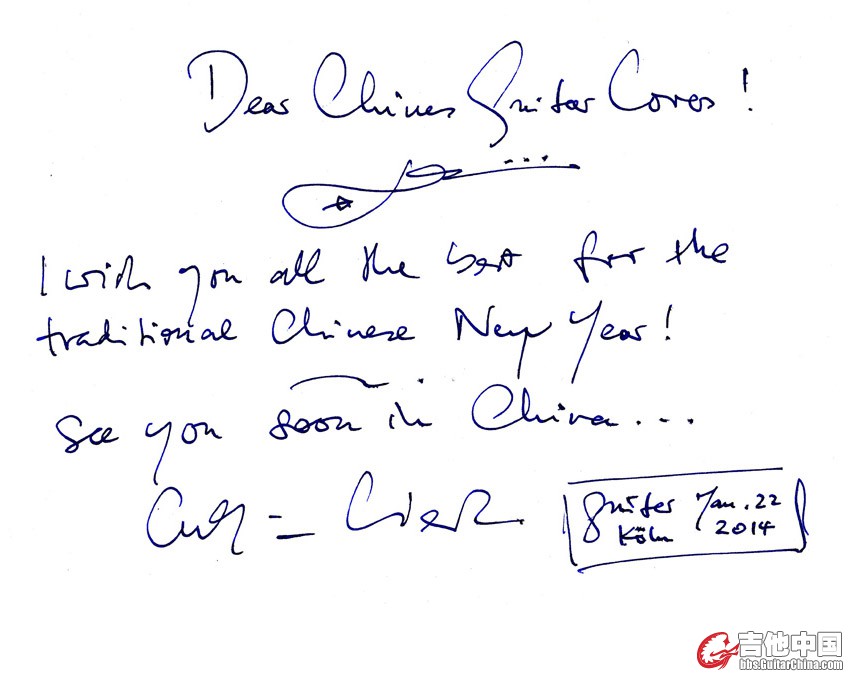 Dear Chines Guitar Lovers!
I wish you all the best for the
traditional Chinese New Year!
See you soon in China...
Jan. 22
Köln 2014
吉他中国
bbs.GuitarChina.com